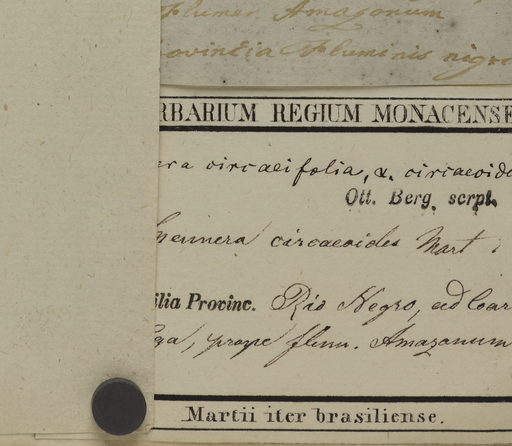 flumen Amazonum
ovincia Fluminis nigr
RBARIUM REGIUM MONACENSE
era circaeifolia, α. circaeoid
Ott. Berg. scrpt.
hennera circaeoides Mart
ilia Provinc. Rio Negro, ad Bar
ga, prope flum. Amazonum
Martii iter brasiliense.